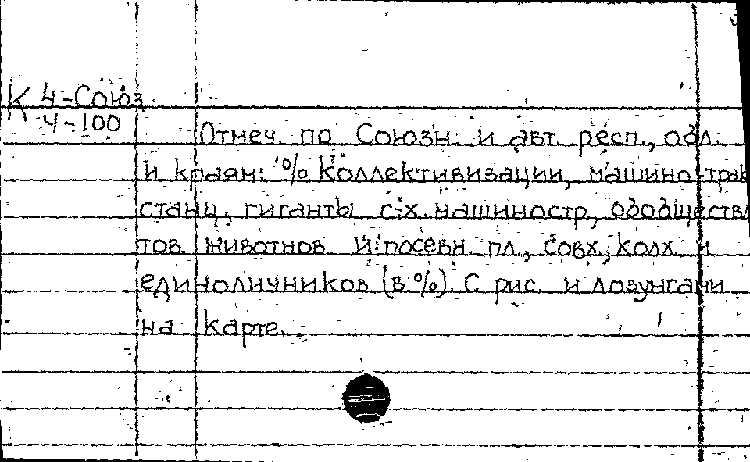 К 4-Союз
4-100
Отмеч. по Союзн. и авт. респ., обл.
и краям: % коллективизации, машино-трак
станц., гиганты с.-х. машиностр., обобществл
тов. животнов. и посевн. пл., совх., колх. и
единоличников (в %). С рис. и лозунгами
на карте.